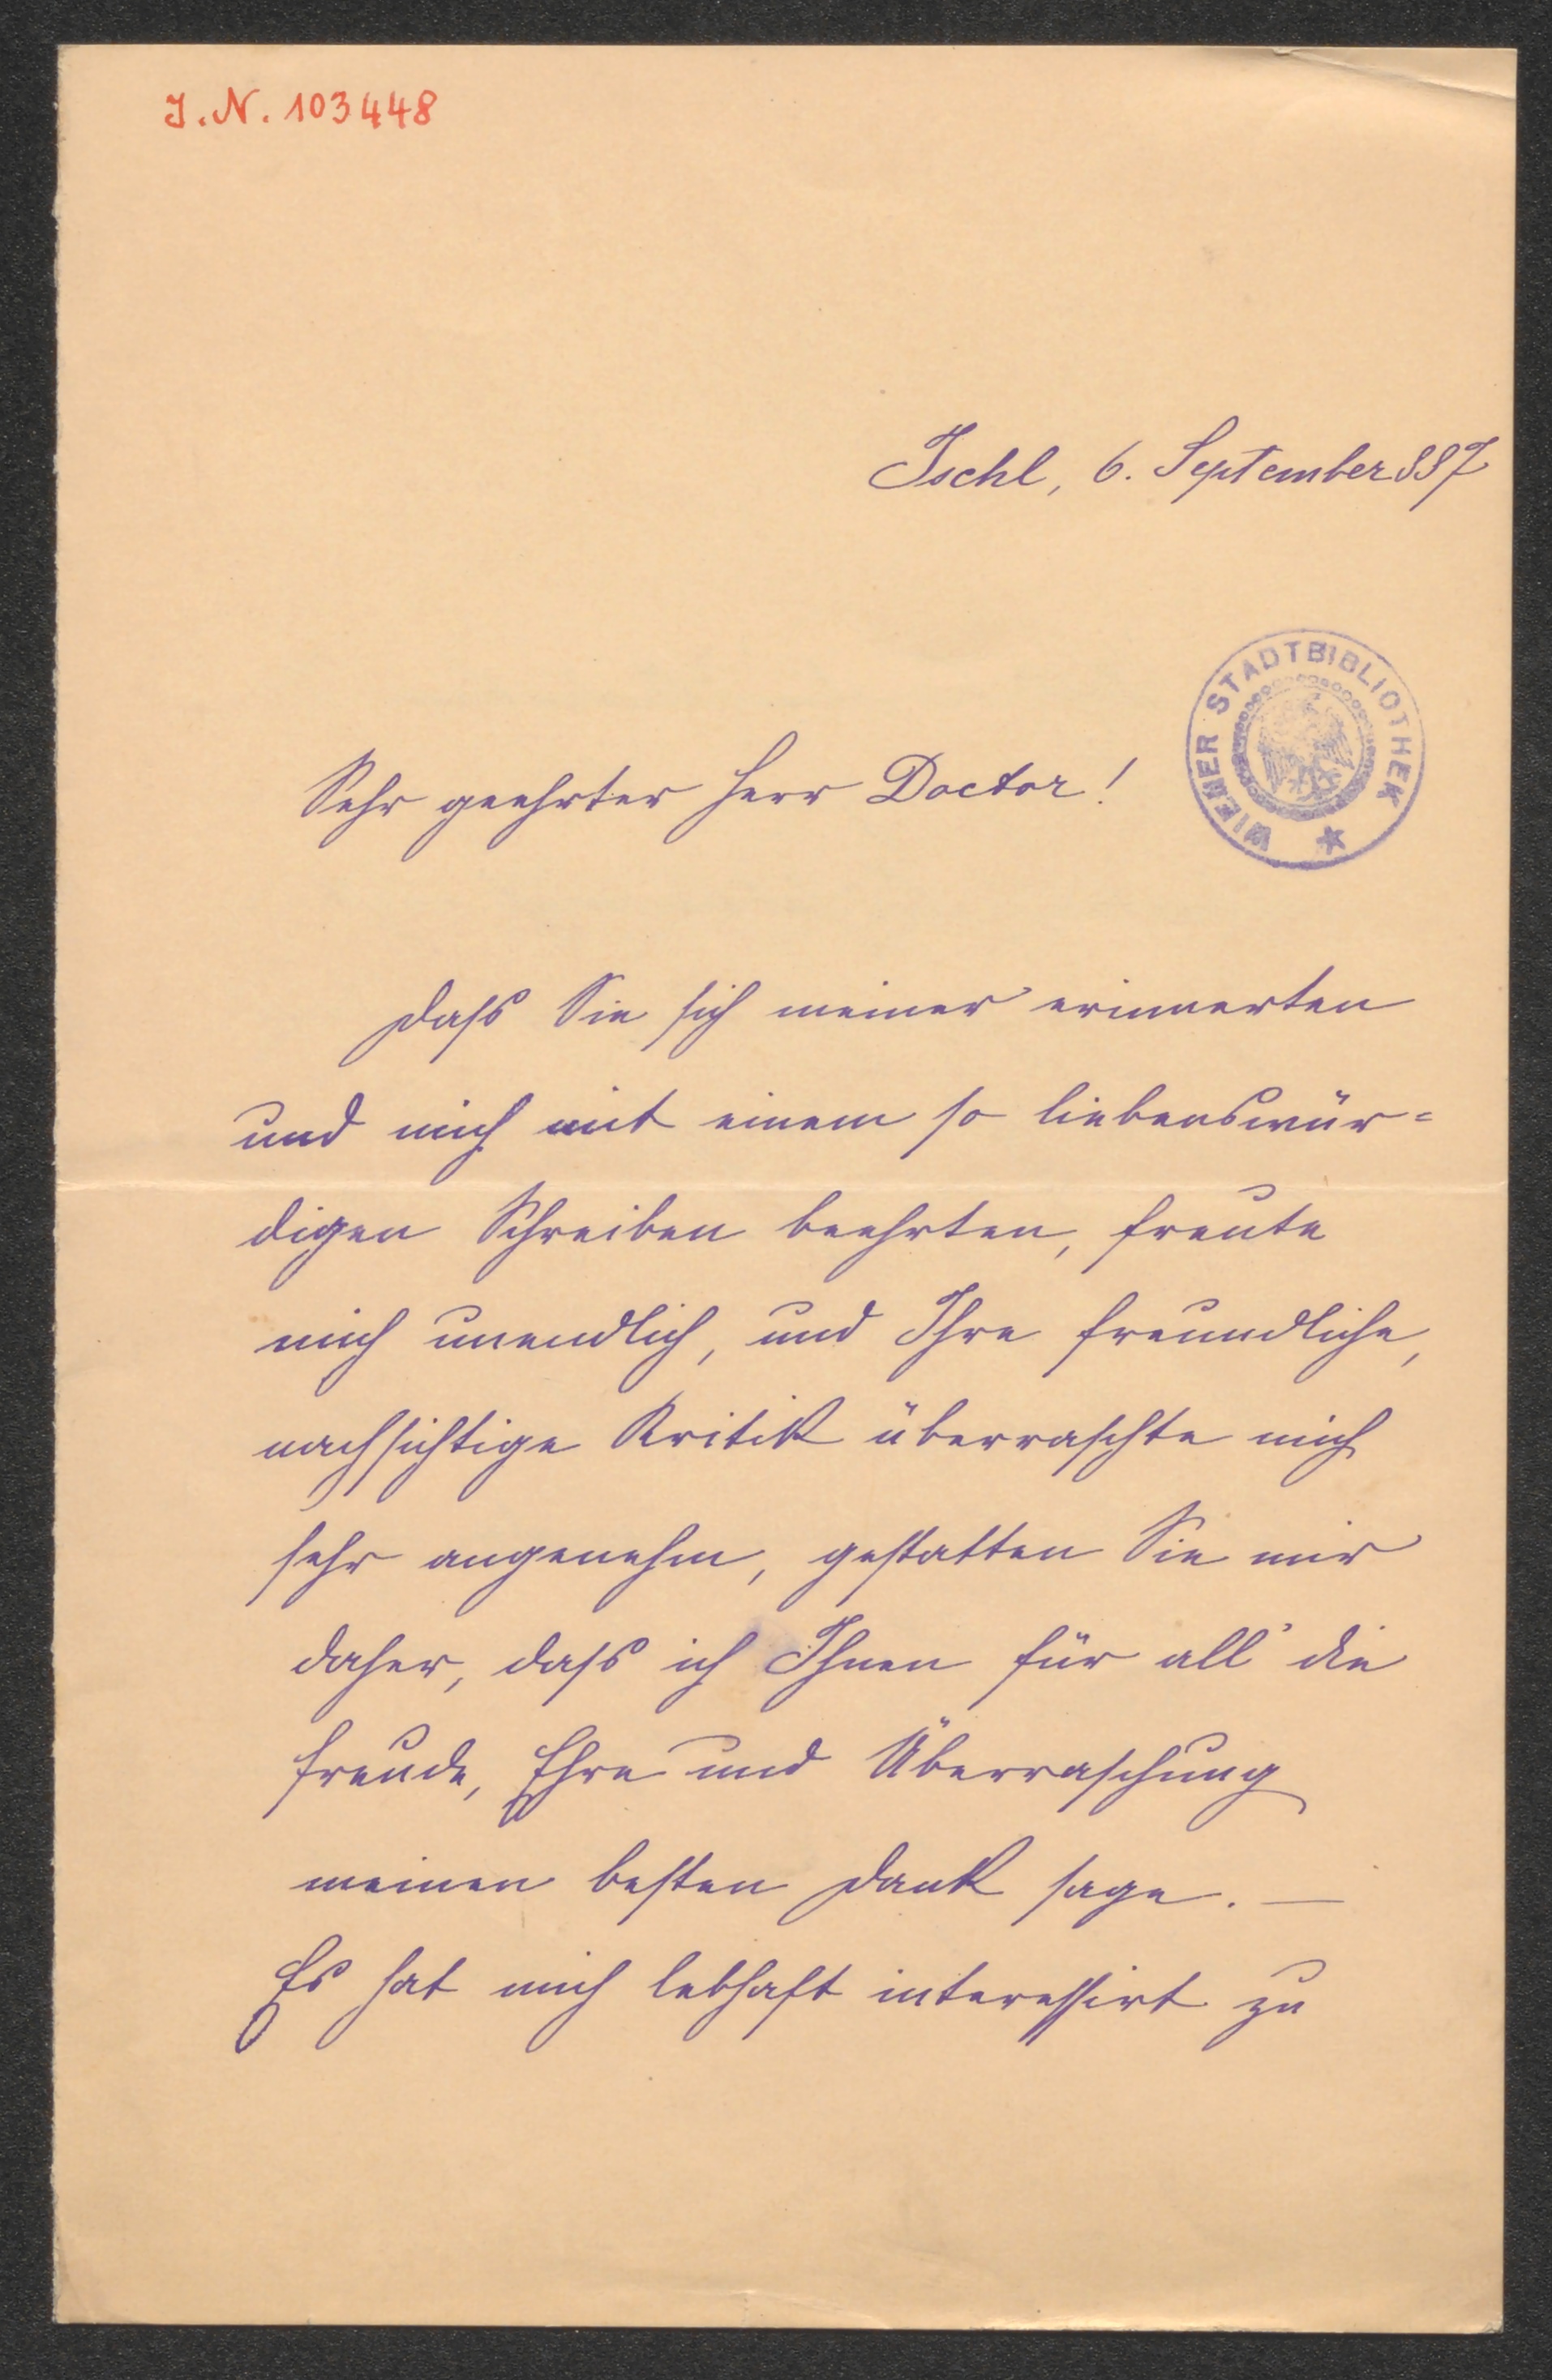 J.N. 103448
Ischl, 6. September 887
WIENER STADTBIBLIOTHEK
Sehr geehrter Herr Doctor!
Daß Sie sich meiner erinnerten
und mich mit einem so liebenswür=
digen Schreiben beehrten, freute
mich unendlich, und Ihre freundliche,
nachsichtige Kritik überraschte mich
sehr angenehm, gestatten Sie mir
daher, daß ich Ihnen für all' die
Freude, Ehre und Überraschung
meinen besten Dank sage. —
Es hat mich lebhaft interessirt zu